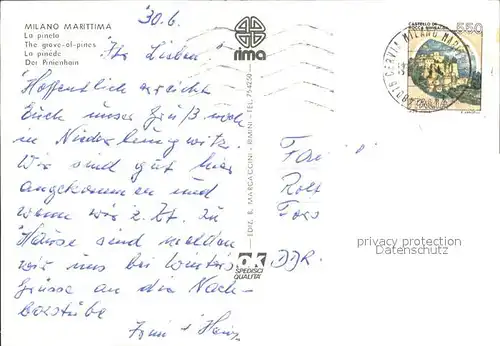 MILANO MARITTIMA
La pineta
The grove-of-pines
La pinède
Der Pinienhain
30.6.
Ihr Lieben!
Hoffentlich erreicht
Euch unser Gruß noch
in
Wir sind gut hier
angekommen und
wenn wir z. Zt. zu
Hause sind melden
wir uns bei
Grüsse an die Nach-
barstube
rima
EDIZ. B. MARGACCINI - RIMINI - TEL. 754250
OK
SPEDISCI
QUALITA'
550
ITALIA
CERVIA MILANO MAR
Rolf
DDR.
privacy protection
Datenschutz